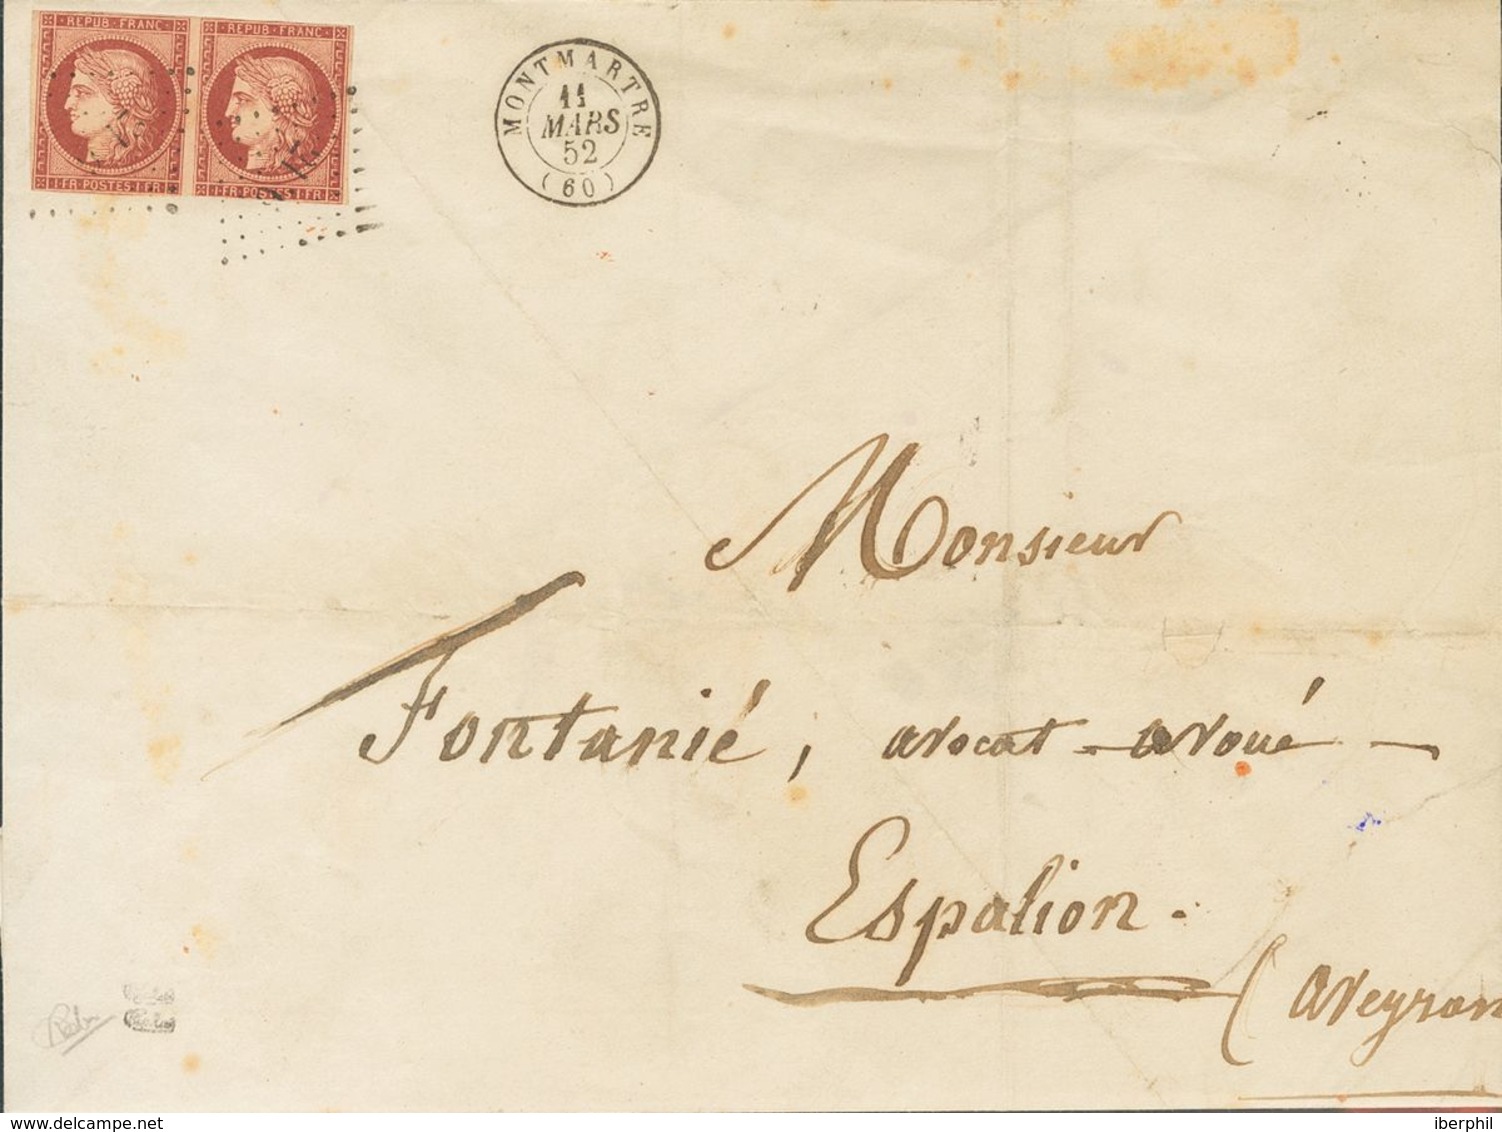 REPUB·FRANC·
·REPUB·FRANC·
1·FR·POSTES·1·FR
1·FR·POSTES·1·FR
MONTMARTRE
11
MARS
52
(60)
Monsieur
Fontanié, avocat-avoué —
Espalion.
(Aveyron
delcampe.net
iberphil